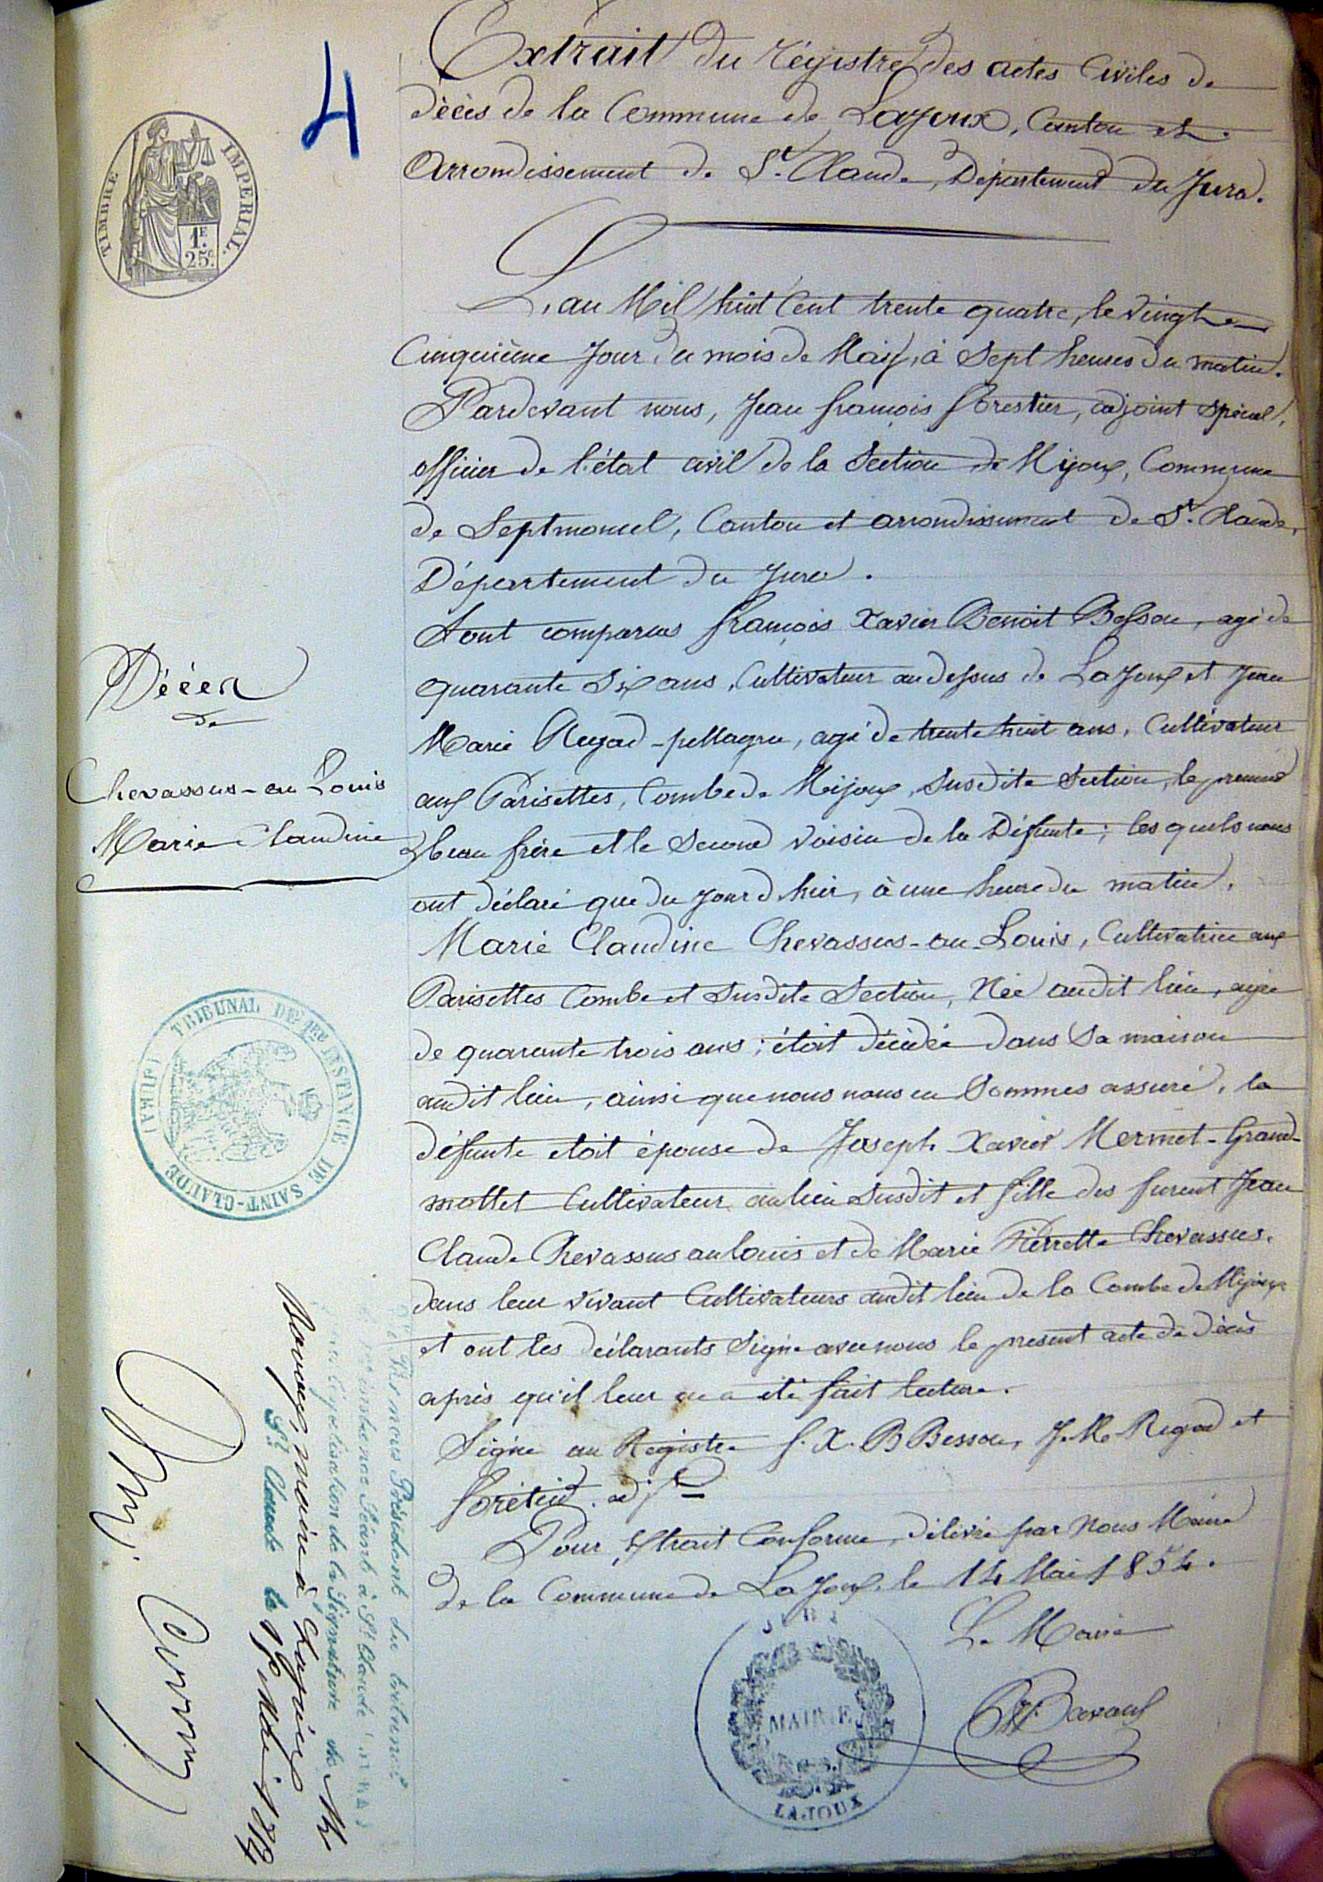 4
TIMBRE IMPERIAL.
1F.
25c.
Extrait du régistre des actes Civiles de
décès de la Commune de Lajoux, Canton et
Arrondissement de St. Claude, Département du Jura.
L'an Mil huit Cent trente quatre, le vingt
Cinquième Jour du mois de Mai, à Sept heures du matin.
Pardevant nous, Jean françois forestier, adjoint spécial,
officier de l'état civil de la Section de Mijoux, Commune
de Septmoncel, Canton et arrondissement de St. Claude,
Département du Jura.
Sont comparus françois Xavier Benoit Besson, agé de
quarante Six ans, Cultivateur au dessus de LaJoux et Jean
Marie Regad-pellagru, agé de trente huit ans, Cultivateur
aux Parisettes, Combe de Mijoux, Susdite Section, le premier
beau frère et le Second Voisin de la Défunte; les quels nous
ont déclaré que du Jour d'hier, à une heure du matin,
Marie Claudine Chevassus-au-Louis, Cultivatrice aux
Parisettes Combe et Susdite Section, Née audit lieu, agée
de quarante trois ans; étoit décédée dans Sa maison
audit lieu, ainsi que nous nous en Sommes assuré, la
défunte etoit épouse de Joseph Xavier Mermet-Grand-
mottet Cultivateur au lieu Susdit et fille des furent Jean
Claude Chevassus au louis et de Marie Pierrette Chevassus.
dans leur vivant Cultivateurs audit lieu de la Combe de Mijoux
et ont les déclarants Signé avec nous le présent acte de décès
après qu'il leur en a été fait lecture.
Signé au Registre f. X. B Besson, J. M. Regad et
foretier. adjt
Pour Extrait Conforme, délivré par Nous Maire
de la Commune de LaJoux le 14 Mai 1854.
Le Maire
Décès
de
Chevassus-au Louis
Marie Claudine
TRIBUNAL DE 1ERE INSTANCE DE SAINT-CLAUDE (JURA)
Par nous Président du tribunal
instance Séant à St Claude (Jura)
légalisation de la Signature de M
maire à Lajoux
St Claude le
JURA
MAIRIE
LAJOUX